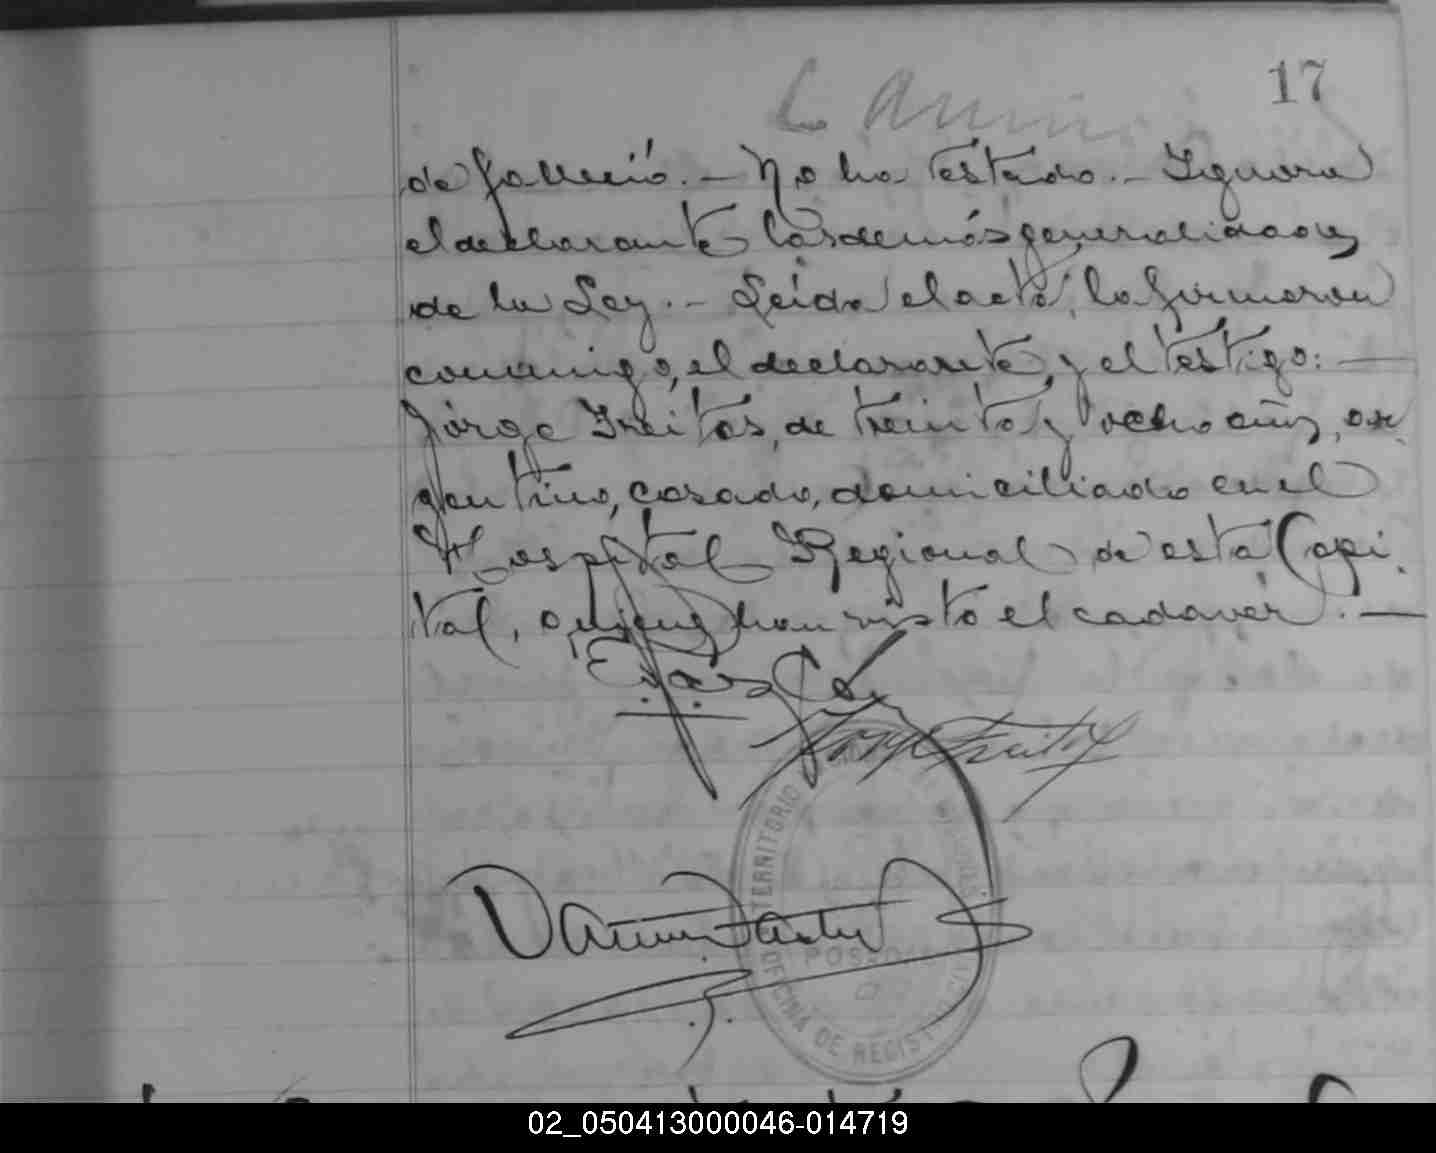 17
de falleció.- No ha testado.- Ignora
el declarante las demás generalidades
de la Ley.- Leída el acta, la firmaron
conmigo, el declarante y el testigo:—
Jorge Freitas, de treinta y ocho años, ar
gentino, casado, domiciliado en el
Hospital Regional de esta Capi-
tal, quienes han visto el cadáver.—
Jorge Freitas
TERRITORIO
POSADAS
OFICINA DE REGISTRO CIVIL
02_050413000046-014719